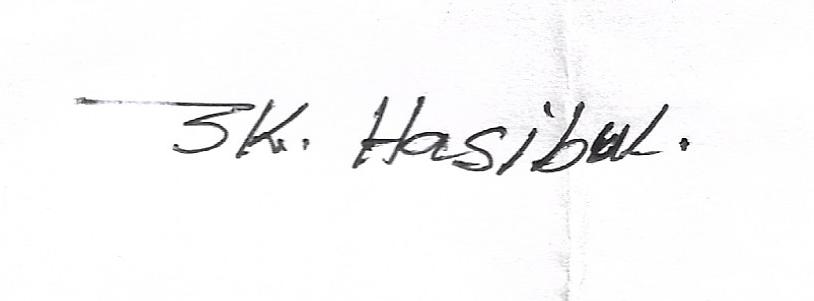 SK. Hasibul.